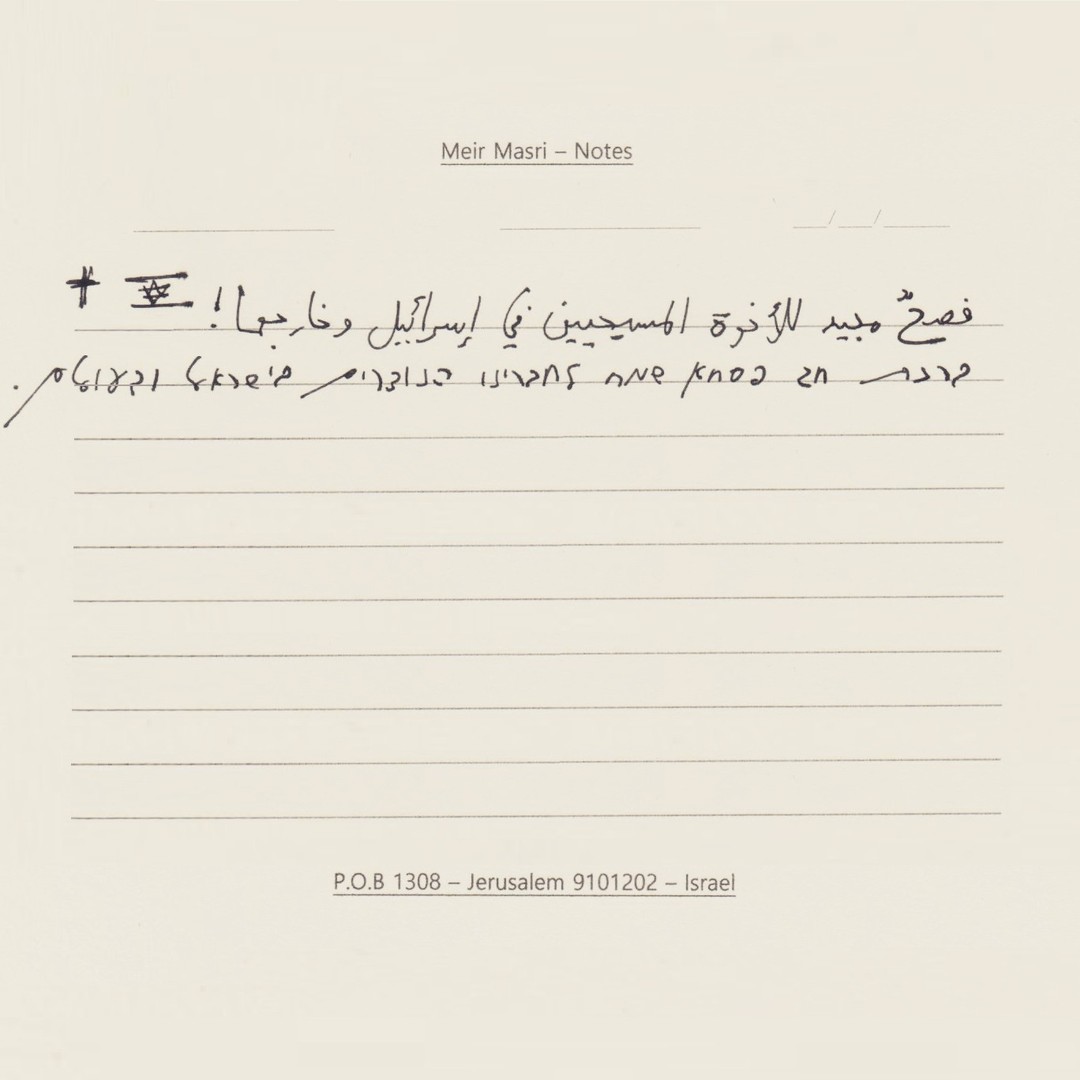 Meir Masri – Notes
فصحٌ مجيد للأخوة المسيحيين في إسرائيل وخارجها!
ברכת חג פסחא שמח לחברינו הנוצרים בישראל ובעולם.
P.O.B 1308 – Jerusalem 9101202 – Israel